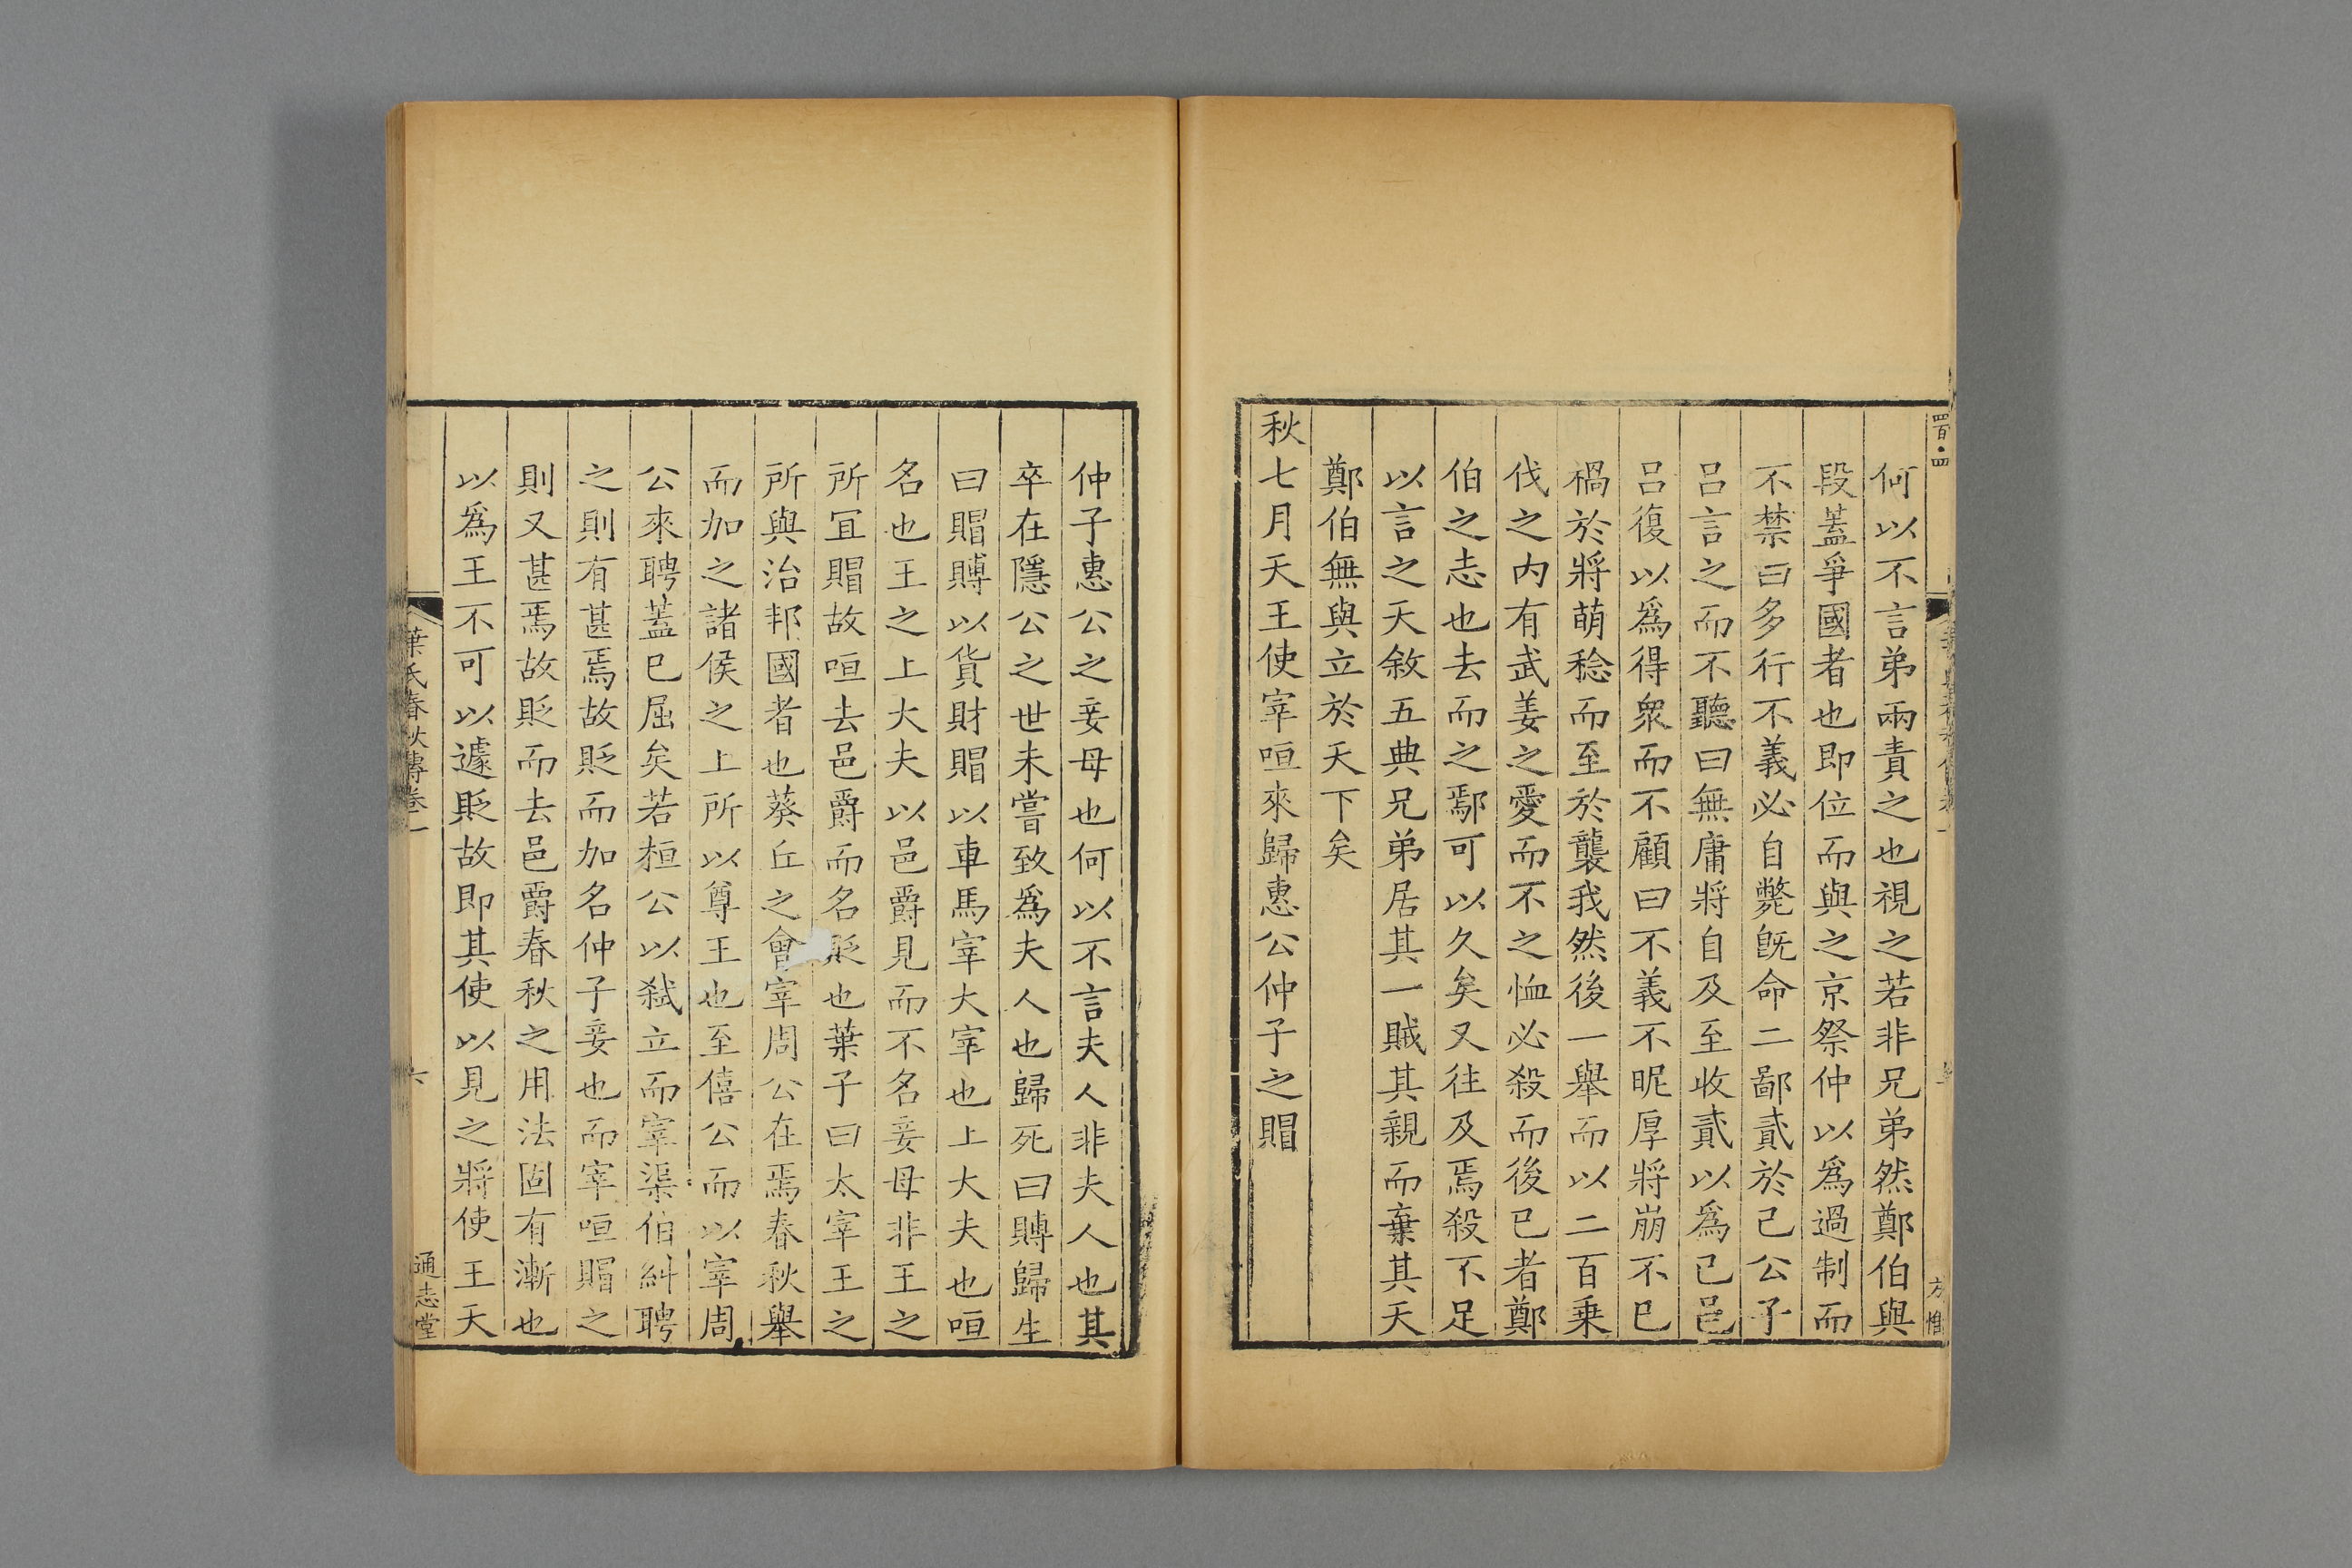 何以不言弟兩責之也視之若非兄弟然鄭伯與
段蓋爭國者也即位而與之京祭仲以爲過制而
不禁曰多行不義必自斃旣命二鄙貳於己公子
呂言之而不聽曰無庸將自及至收貳以爲己邑
呂復以爲得衆而不顧曰不義不昵厚將崩不巳
禍於將萌稔而至於襲我然後一舉而以二百乗
伐之内有武姜之愛而不之恤必殺而後已者鄭
伯之志也去而之鄢可以久矣又往及焉殺不足
以言之天敘五典兄弟居其一賊其親而棄其天
鄭伯無與立於天下矣
秋七月天王使宰咺來歸惠公仲子之賵
仲子惠公之妾母也何以不言夫人非夫人也其
卒在隱公之世未嘗致爲夫人也歸死曰賻歸生
曰賵賻以貨財賵以車馬宰大宰也上大夫也咺
名也王之上大夫以邑爵見而不名妾母非王之
所冝賵故咺去邑爵而名貶也葉子曰太宰王之
所與治邦國者也葵丘之會宰周公在焉春秋舉
而加之諸侯之上所以尊王也至僖公而以宰周
公來聘蓋巳屈矣若桓公以弑立而宰渠伯糾聘
之則有甚焉故貶而加名仲子妾也而宰咺賵之
則又甚焉故貶而去邑爵春秋之用法固有漸也
以爲王不可以遽貶故即其使以見之將使王天
葉氏春秋傳卷一
六
通志堂